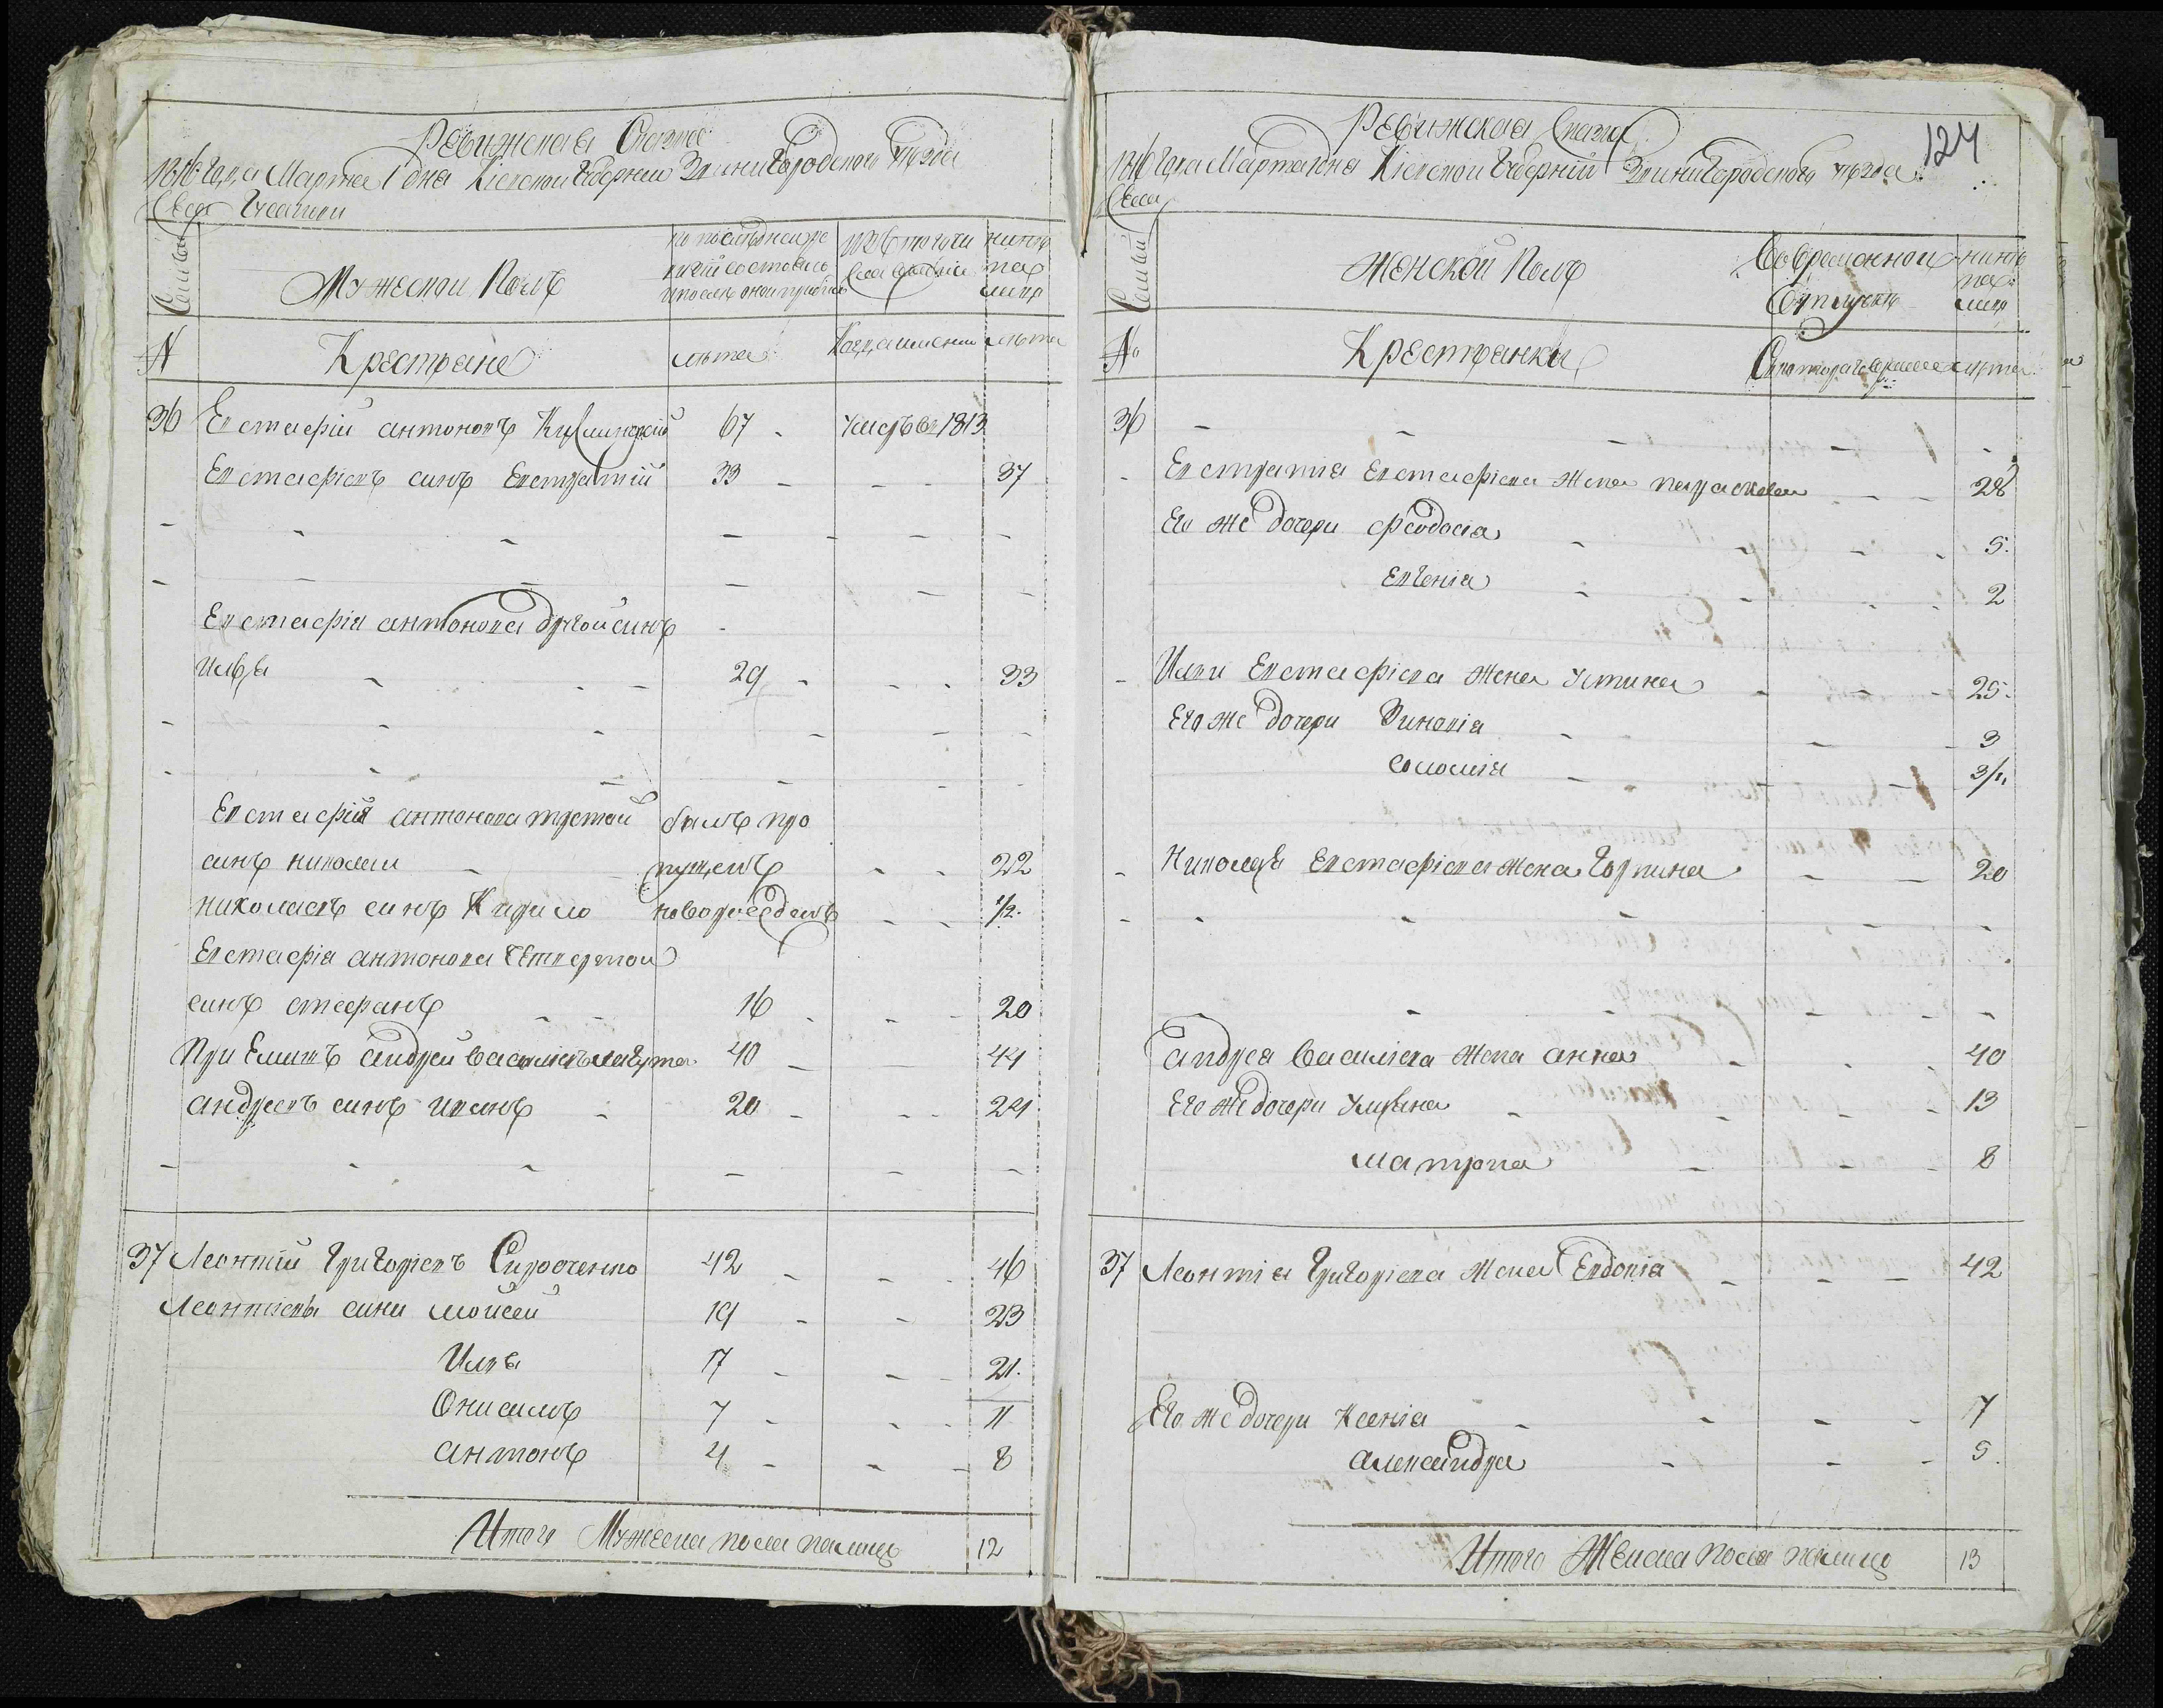 Ревижская Сказка
1816 Года Марта 1 дня Кіевской Губерніи Звинигородского Уезда
Села
Семьи
Мужеской Полъ
по последней ре
визіи состояло
и после оной прибыло
изъ того числа
выбыло
нинѣ
на
лицо
N
Крестьяне
лѣта
Когда именно
лѣта
36 Евстафій антоновъ 67 - умеръ въ 1813
Евстафіевъ синъ Евстратій 33 - - - 37
Евстафія антонова другой синъ
Илья 29 - - - 33
Евстафія антонова третой билъ про
синъ николай пущенъ - - 22
николаевъ синъ Кирило новорожденъ - - 1/2
Евстафія антонова четвертой
синъ стефанъ 16 - - - 20
При Емнтъ андрей василіевъ 40 - - 44
андреевъ синъ иванъ 20 - - 24
37 Леонтій григоріевъ Сироченко 42 - - - 46
Леонтіеви сини мойсей 19 - - 23
Илья 17 - - - 21.
Онисимъ 7 - - - 11
антонъ 4 - - - 8
Итого Мужеска пола налицо 12
124
Ревижская Сказка
1816 Года Марта 1 дня Кіевской Губерній Звинигородского уезда
Села
Семьи
Женской Полъ
Во временной
Отлучкѣ
нинѣ
на
лицо
No
Крестьянки
Скотораго времени
лѣта
36
- Евстратія Евстафіева жена параскева - - 28
Его же дочери феодосія - - - 5.
Евгенія - - - 2
- Илии Евстафіева жена Устина - - - 25.
Его же дочери Зиновія - - - 3
соломія - - 3/4
- Николая Евстафіева жена Горпина - - 20
андрея василіева жена анна - - - 40
Его же дочери Уляна - - - 13
матрона - - - 8
37 Леонтія григоріева жена Евдокія - - - 42
Его же дочери Ксенія - - - 7
александра - - - 5.
Итого Женска пола налицо 13